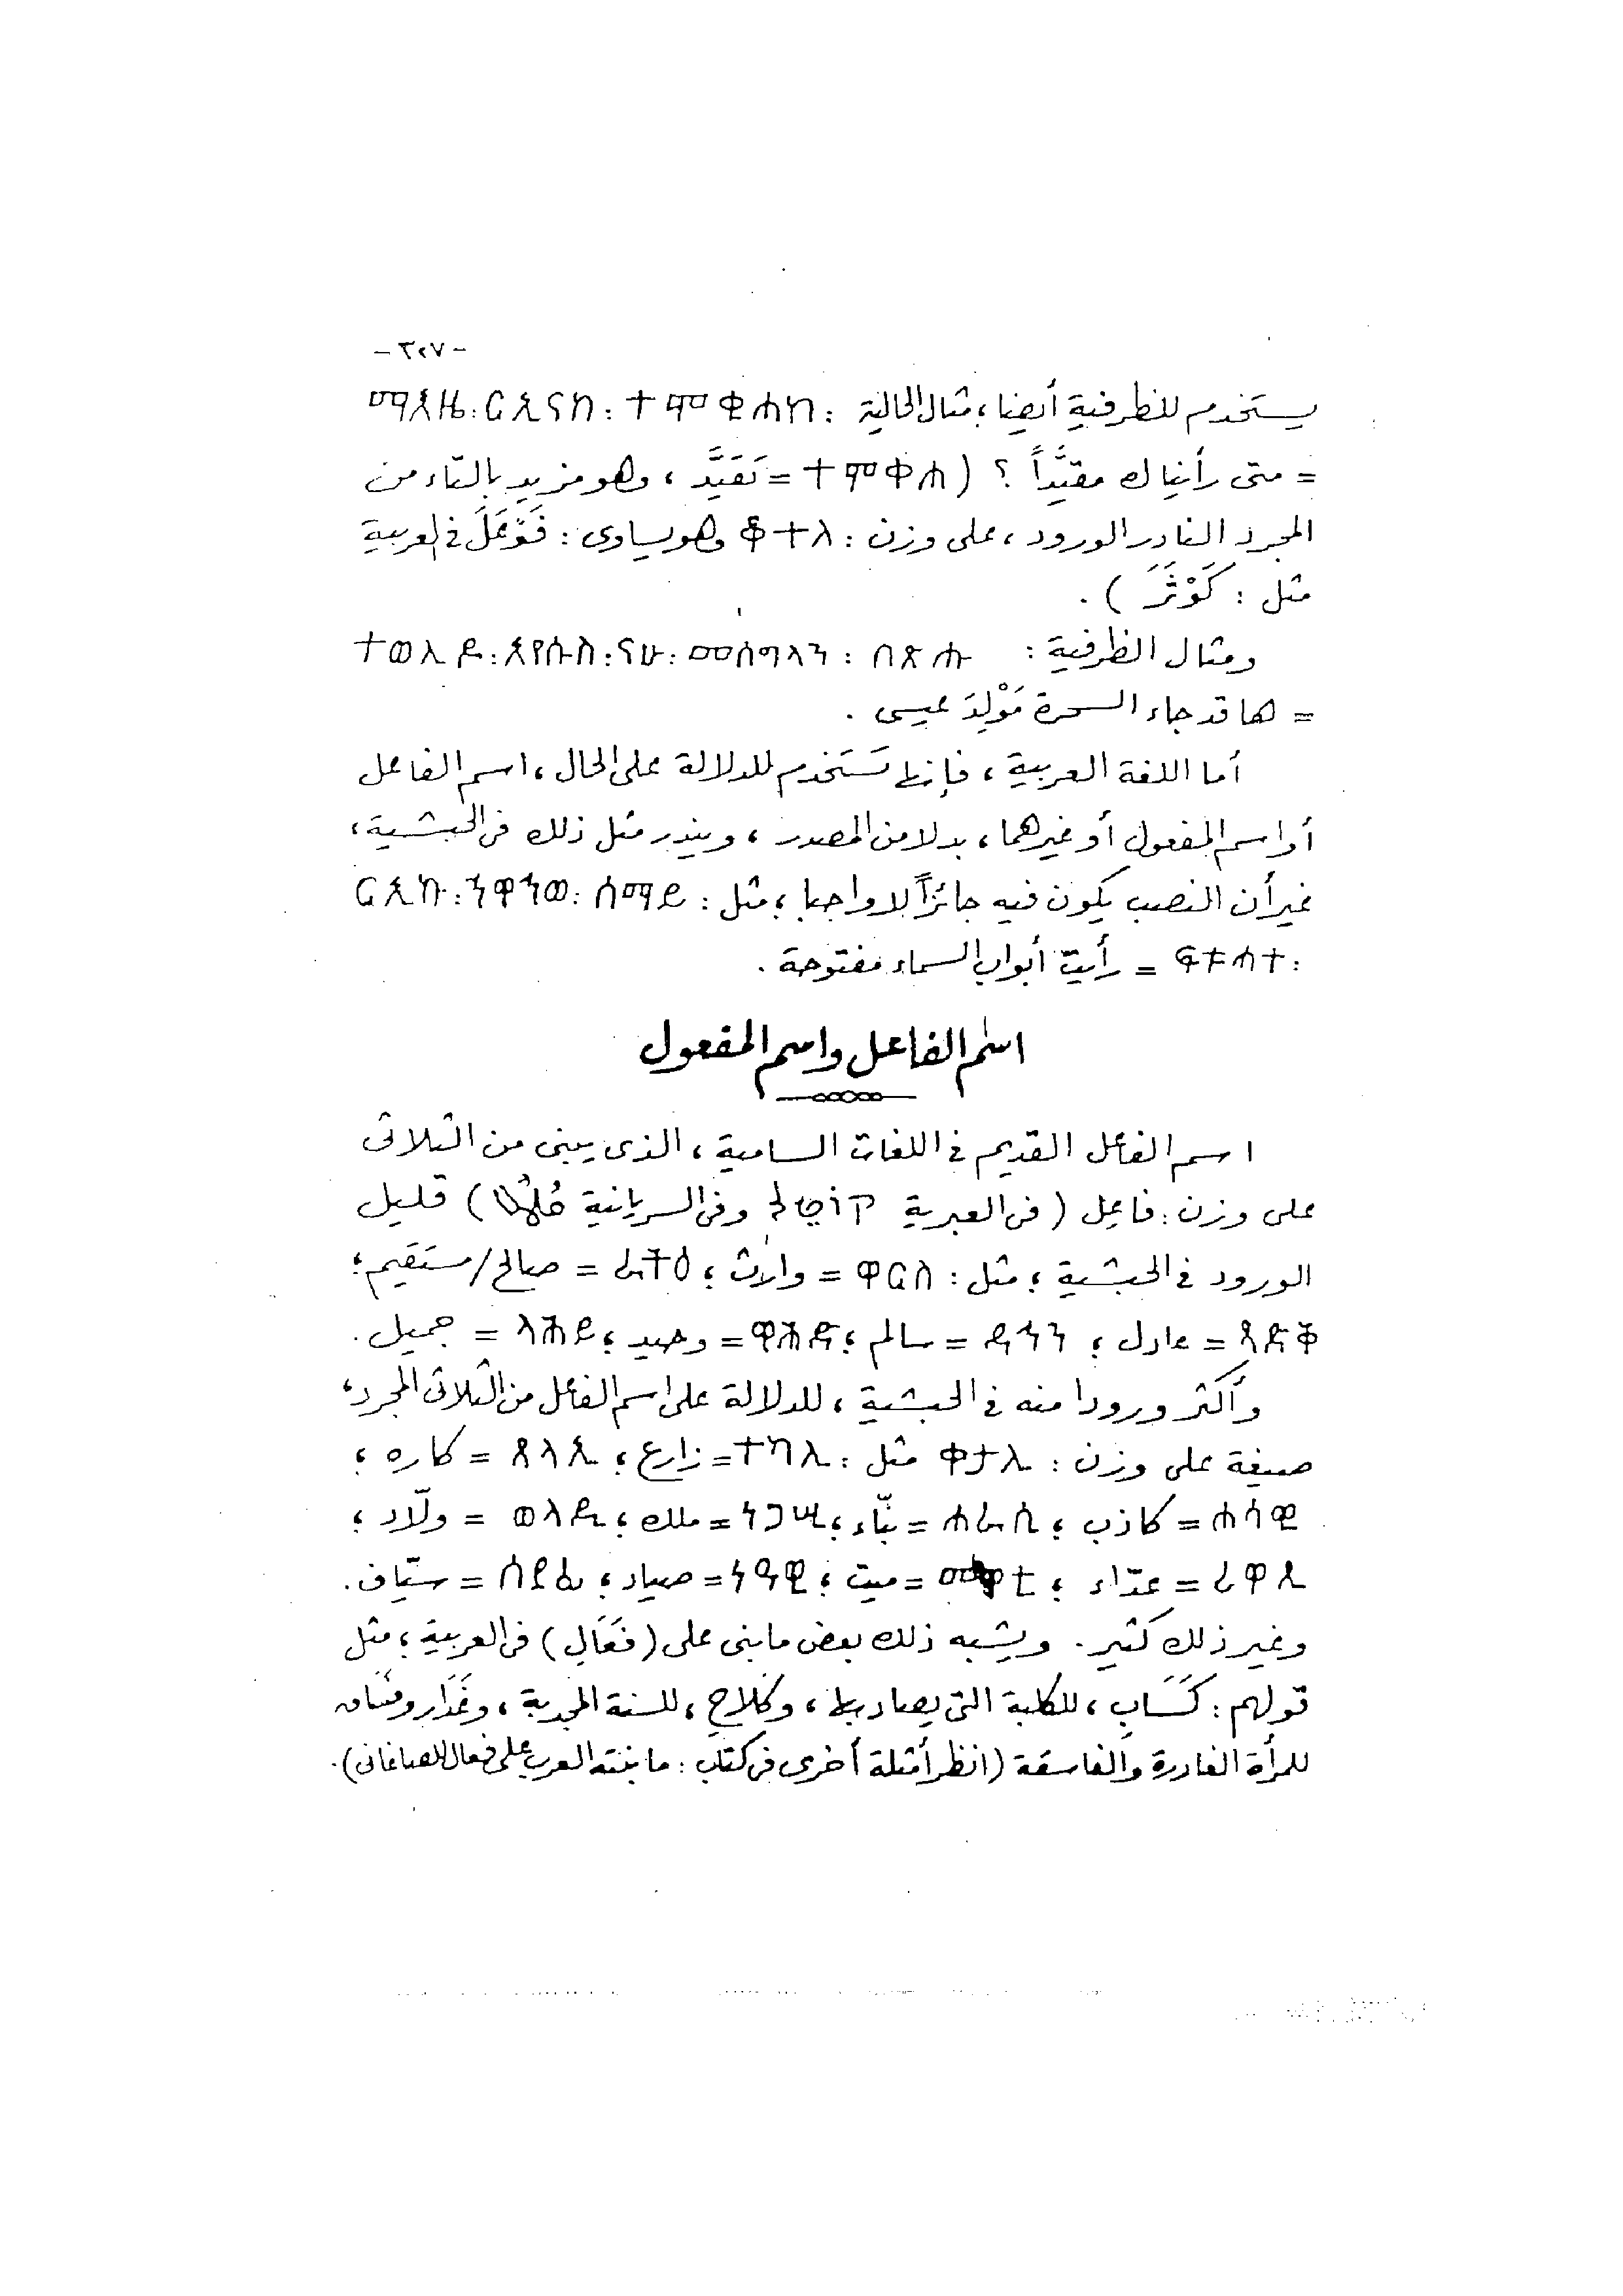 - ٣٠٧ -
يستخدم للظرفية أيضا ؛ مثال الحالية : ማእዜ፡ርኢናከ፡ተሞቂሐከ፡
= متى رأيناك مقيَّداً ؟ ( ተሞቅሐ = تَقَيَّد ، وهو مزيد بالتاء من
المجرد النادر الورود ، على وزن : ቆተለ وهو يساوى : فَوْعَلَ فى العربية
مثل : كَوْثَرَ ) .
ومثال الظرفية : ተወሊዶ፡ኢየሱስ፡ናሁ፡መሰግላን፡በጽሑ
= ها قد جاء السحرة مَوْلِدَ عيسى .
أما اللغة العربية ، فإنها تَسْتَخدم للدلالة على الحال ، اسم الفاعل
أو اسم المفعول أو غيرهما ، بدلا من المصدر ، ويندر مثل ذلك فى الحبشية ،
غير أن النصب يكون فيه جائزاً لا واجبا ؛ مثل : ርኢኩ፡ኆኃተ፡ሰማይ
: = رأيت أبواب السماء مفتوحة .
اسم الفاعل واسم المفعول
اسم الفاعل القديم فى اللغات السامية ، الذى يبنى من الثلاثى
على وزن : فاعِل ( فى العبرية קוֹטֵל وفى السريانية ) قليل
الورود فى الحبشية ؛ مثل : ዋርስ = وارث ؛ ራትዕ = صالح / مستقيم ؛
ጻድቅ = عادل ؛ ዳኅን = سالم ؛ ዋሕድ = وحيد ؛ ላሕይ = جميل .
وأكثر ورودا منه فى الحبشية ، للدلالة على اسم الفاعل من الثلاثى المجرد ،
صيغة على وزن : ቀታሊ مثل : ተካሊ = زارع ؛ ጸላኢ = كاره ؛
ሐሳዊ = كاذب ؛ ሐራሲ = بنّاء ؛ ነጋሢ = ملك ؛ ወላዲ = ولّاد ؛
= عدّاء ؛ = ميت ؛ ነዓዊ = صياد ؛ ሰያፊ = سيّاف .
وغير ذلك كثير . ويشبه ذلك بعض ما بنى على ( فَعَالِ ) فى العربية ؛ مثل
قولهم : كَسَابِ ، للكلبة التى يصاد بها ، وكَلَاحِ ، للسنة المجدبة ، وغَدَارِ وفَسَاقِ
للمرأة الغادرة والفاسقة ( انظر أمثلة أخرى فى كتاب : ما بنته العرب على فعال للصاغانى ) .